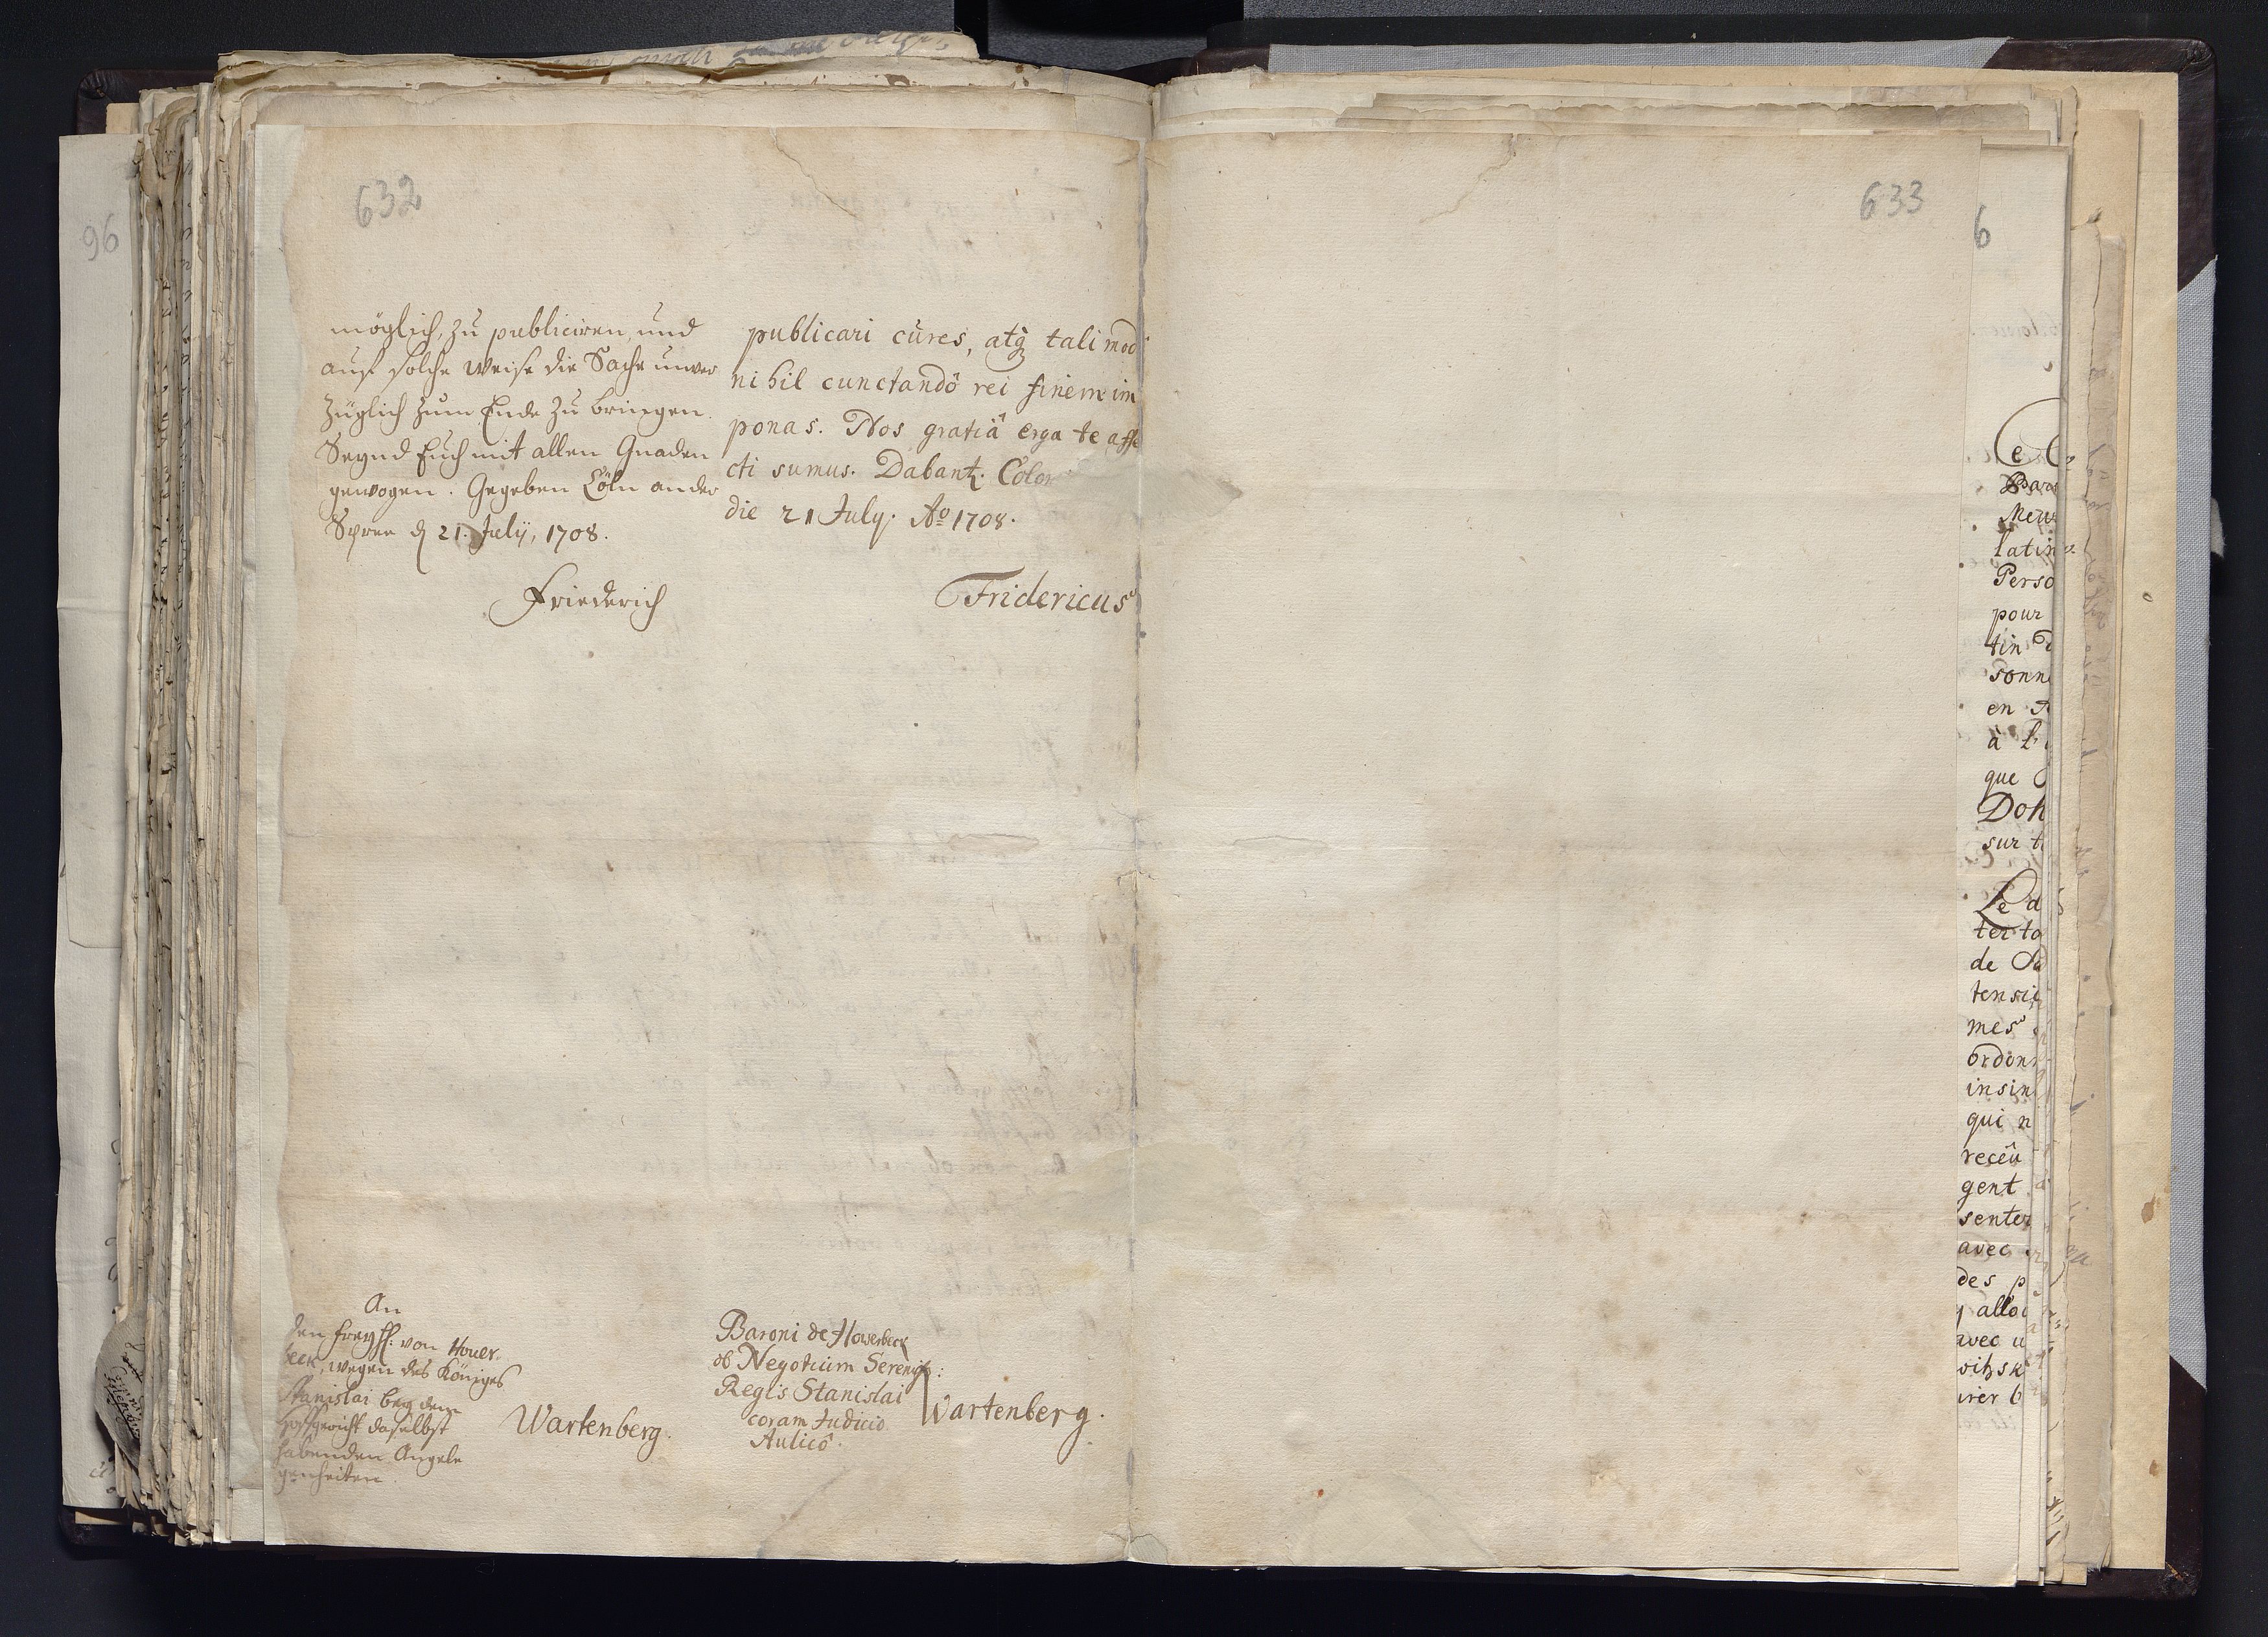 632
möglich, zu publiciren, und
auf solche Weise die Sache unver
züglich zum Ende zu bringen.
Seynd Euch mit allen Gnaden
gewogen. Gegeben Cöln an der
Spree d 21. Julij, 1708.
Friederich
An
den Freyh: von Hover
beck, wegen des Königes
Stanislai bey dem
Hoffgericht daselbst
habenden Angele
genheiten.
Wartenberg.
publicari cures, atq tali mod
nihil cunctandô rei finem im
ponas. Nos gratiâ erga te affe
cti sumus. Dabant. Colon
die 21 July. Aº 1708.
Fridericus
Baroni de Howerbeck
ob Negotium Sereniss:
Regis Stanislai
coram Judicio
Aulicô.
Wartenberg.
633
96
6
Mew
latin
Perso
pour
tin
sonn
en
à
que
Doh
sur
Le d
de
tensi
mes
ordon
insin
qui n
receu
gent
senter
avec
des p
avec u